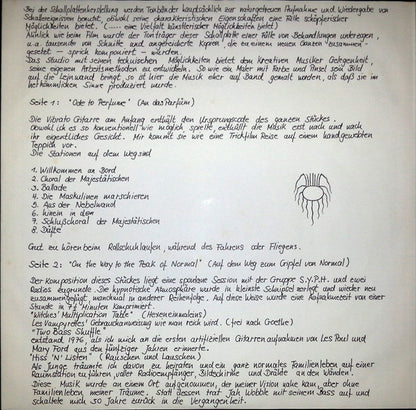 Bei der Schallplattenherstellung werden Tonbänder hauptsächlich zur naturgetreuen Aufnahme und Wiedergabe von
Schallereignissen benutzt, obwohl seine charakteristischen Eigenschaften eine Fülle schöpferischer
Möglichkeiten bietet. (..... eine Vielfalt künstlerischer Möglichkeiten bietet)
Ähnlich wie beim Film wurde der Tonträger dieser Schallplatte einer Fülle von Behandlungen unterzogen,
u.a. tausende von Schnitte und angefeuerte Kopien, die zu einem neuen Ganzen "zusammen-
gesetzt - sprich komponiert - wurden.
Das Studio mit seinen technischen Möglichkeiten bietet dem kreativen Musiker Gelegenheit,
seine eigenen Arbeitsmethoden zu entwickeln. So wie ein Maler mit Farbe und Pinsel sein Bild
auf die Leinwand bringt, so ist hier die Musik eher auf Band gemalt worden, als daß sie im
herkömmlichen Sinne produziert wurde.
Seite 1: "Ode to Perfume" (An das Parfüm)
Die Vibrato Gitarre am Anfang enthält den Ursprungscode des ganzen Stückes.
Obwohl ich es so konventionell wie möglich spielte, enthüllt die Musik erst nach und nach
ihr eigentliches Gesicht. Mir kommt sie wie eine Trickfilm Reise auf einem handgewebten
Teppich vor.
Die Stationen auf dem Weg sind
1. Willkommen an Bord
2. Choral der Majestätischen
3. Ballade
4. Die Maskulinen marschieren
5. Aus der Nebelwand
6. hinein in den
7. Schlußchoral der Majestätischen
8. Düfte
Gut zu hören beim Rollschuhlaufen, während des Fahrens oder Fliegens.
Seite 2: "On the Way to the Peak of Normal" (Auf dem Weg zum Gipfel von Normal)
Der Komposition dieses Stückes liegt eine spontane Session mit der Gruppe S.Y.P.H. und zwei
Radios zugrunde. Die hypnotische Atmosphäre wurde in kleinste Schnipsel zerlegt und wieder neu
zusammengefügt, manchmal in anderer Reihenfolge. Auf diese Weise wurde eine Aufnahmezeit von einer
Stunde in 7½ Minuten komprimiert.
"Witches' Multiplication Table" (Hexeneinmaleins)
Les Vampyrelles' Gebrauchsanweisung wie man reich wird. (frei nach Goethe)
"Two Bass Shuffle"
entstand 1976, als ich mich an die ersten artifiziellen Gitarrenaufnahmen von Les Paul und
Mary Ford aus den fünfziger Jahren erinnerte.
"Hiss 'N' Listen" (Rauschen und Lauschen)
Als Junge träumte ich davon zu heiraten und ein ganz normales Familienleben auf einer
Raumstation zu führen, voller Radioempfänger, Bildschirme und Drähte an den Wänden.
Diese Musik wurde an einem Ort aufgenommen, der meiner Vision nahe kam, aber ohne
Familienleben meiner Träume. Statt dessen trat Jah Wobble mit seinem Bass auf und
schaltete mich 30 Jahre zurück in die Vergangenheit.